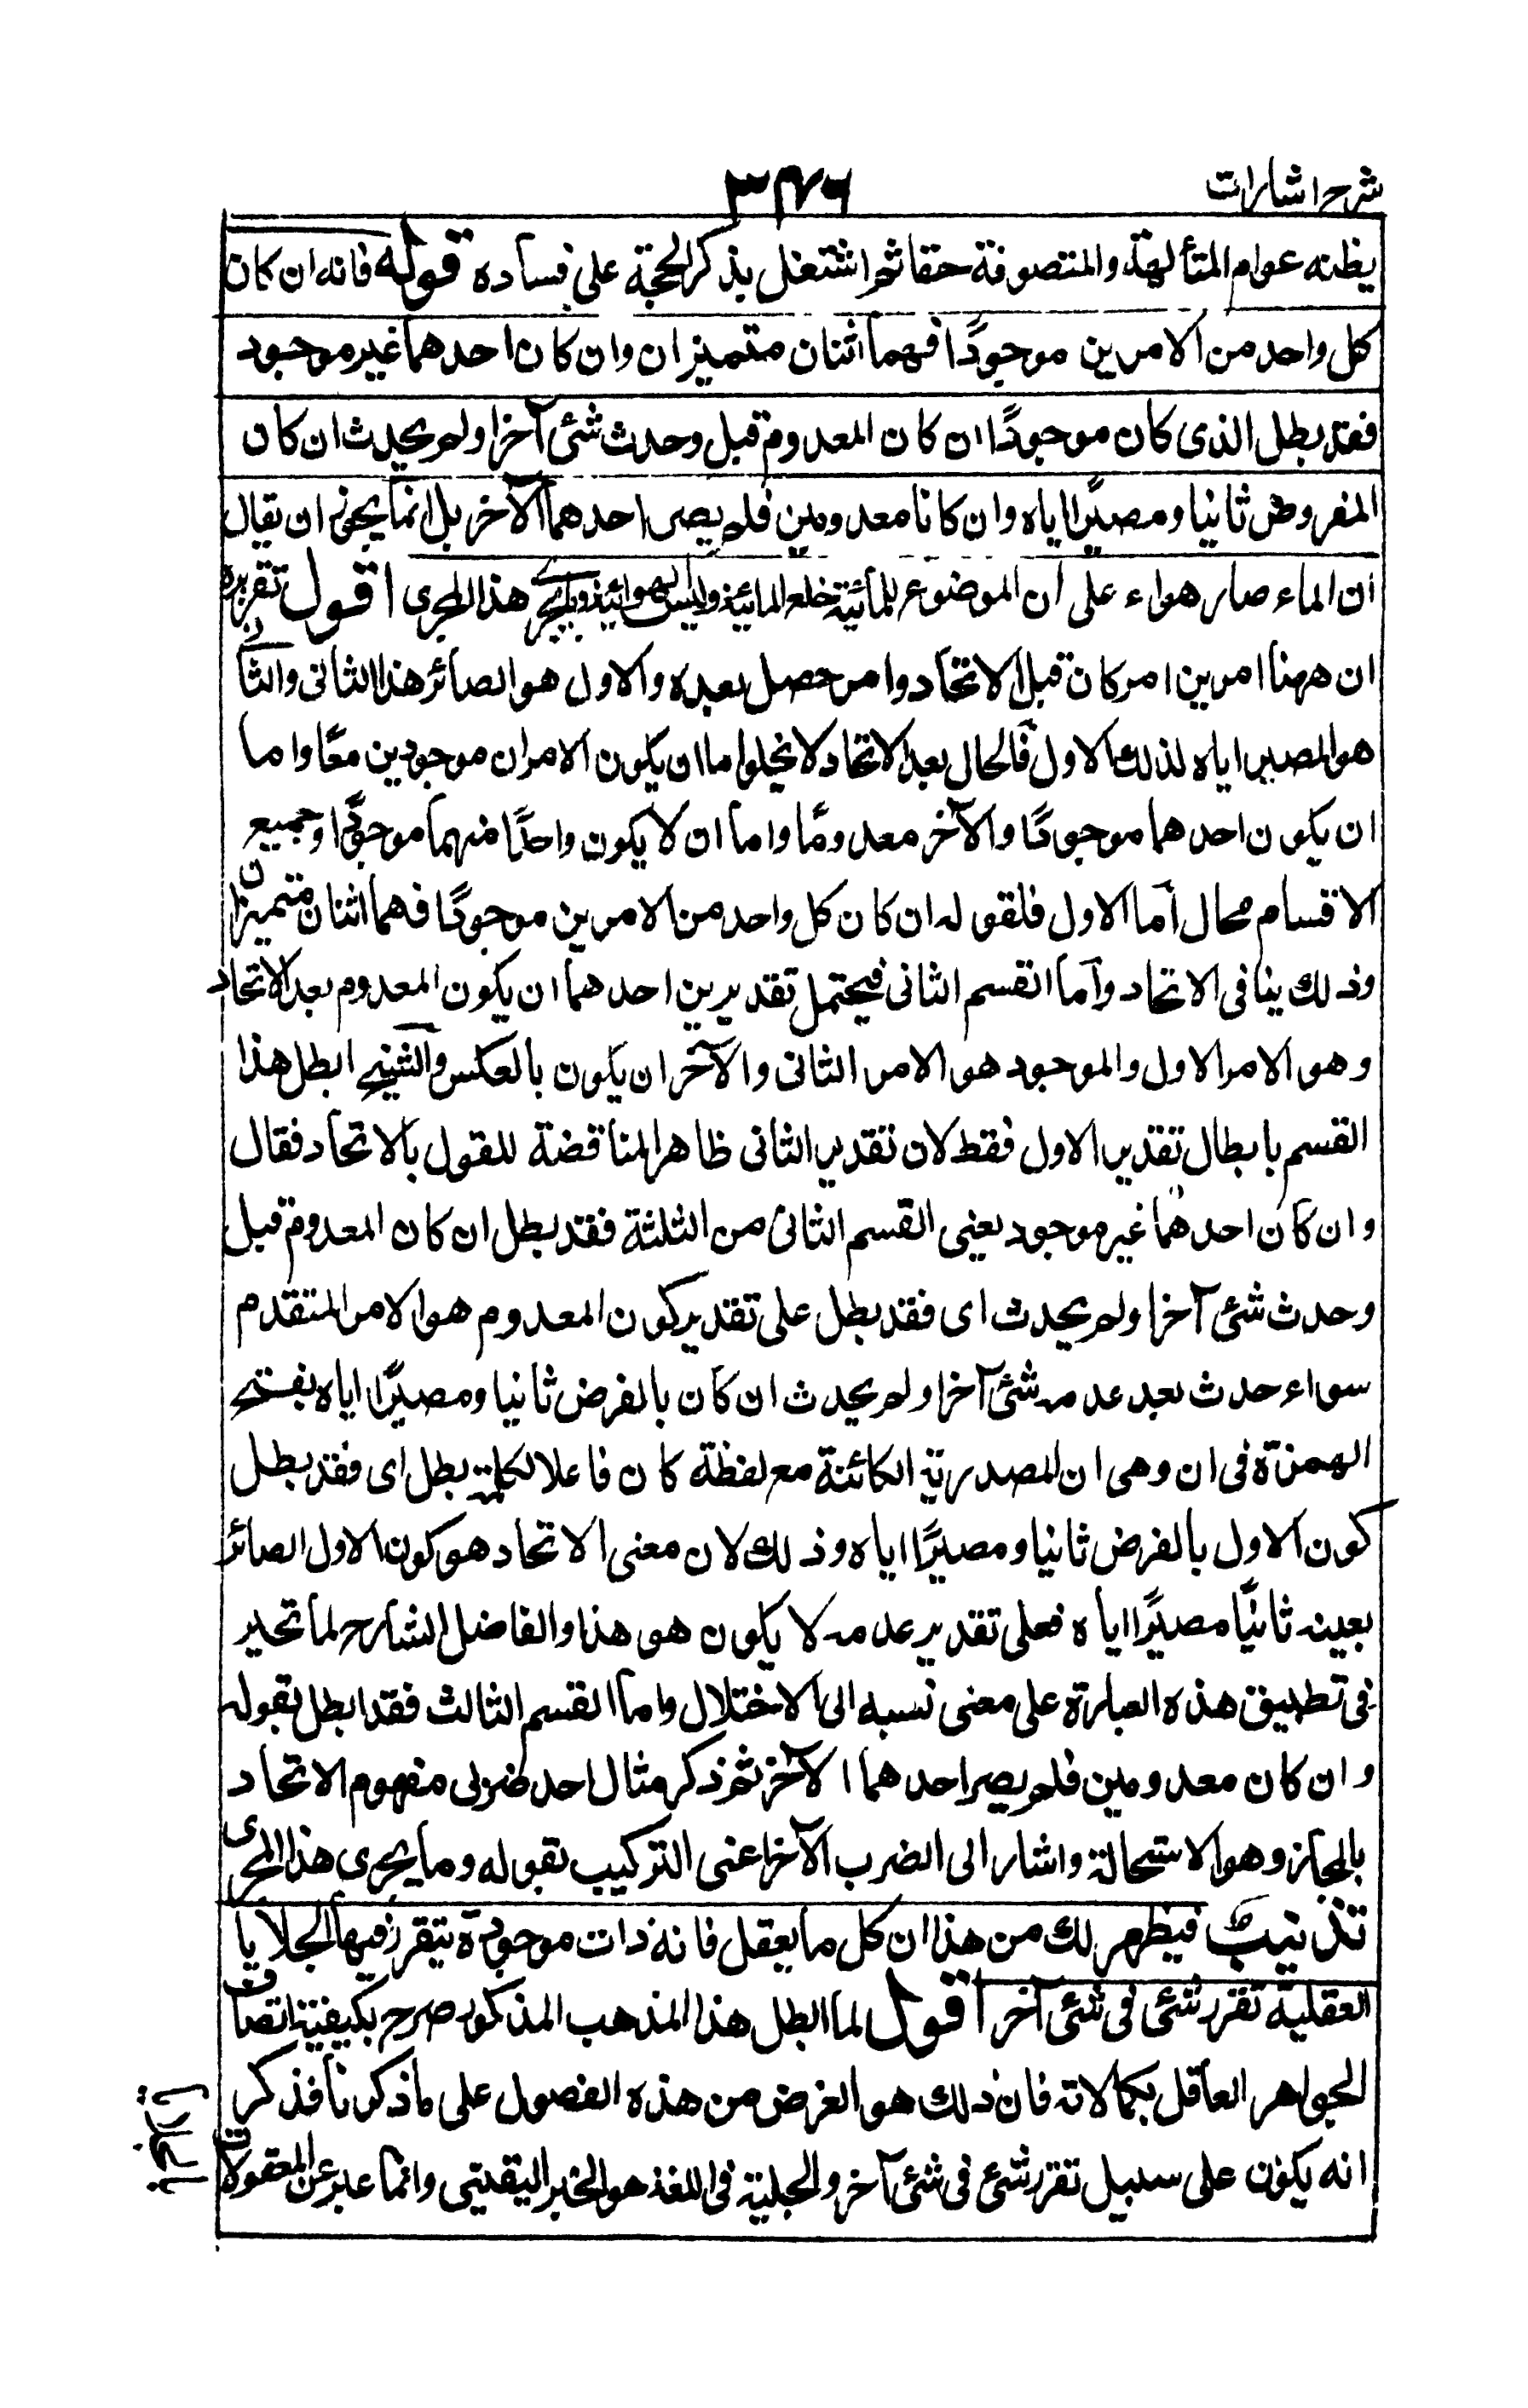 شرح اشارات
٣٤٦
يظنه عوام المتألهة والمتصوفة حقا ثم اشتغل بذكر الحجة على فساده قوله فانه ان كان
كل واحد من الامرين موجودًا فهما اثنان متميزان وان كان احدهما غير موجود
فقد بطل الذى كان موجودًا ان كان المعدوم قبل وحدث شئ آخر او لم يحدث ان كان
المفروض ثانيا ومصيرًا اياه وان كانا معدومين فلم يصر احدهما الآخر بل انما يجوز ان يقال
ان الماء صار هواء على ان الموضوع للمائية خلع المائية ولبس الهوائية وما يجرى هذا المجرى اقول تقريره
ان ههنا امرين امر كان قبل الاتحاد وامر حصل بعده والاول هو الصائر هذا الثانى والثانى
هو المصير اياه لذلك الاول فالحال بعد الاتحاد لا يخلوا ما ان يكون الامران موجودين معًا واما
ان يكون احدهما موجودًا والآخر معدومًا واما ان لا يكون واحدًا منهما موجودًا وجميع
الاقسام محال اما الاول فلقوله ان كان كل واحد من الامرين موجودًا فهما اثنان متميزان
وذلك ينافى الاتحاد وآما القسم الثانى فيحتمل تقديرين احدهما ان يكون المعدوم بعد الاتحاد
وهو الامر الاول والموجود هو الامر الثانى والآخر ان يكون بالعكس والشيخ ابطل هذا
القسم بابطال تقدير الاول فقط لان تقدير الثانى ظاهر المناقضة للقول بالاتحاد فقال
وان كان احدهما غير موجود يعنى القسم الثانى من الثلثة فقد بطل ان كان المعدوم قبل
وحدث شئ آخر او لم يحدث اى فقد بطل على تقدير كون المعدوم هو الامر المتقدم
سواء حدث بعد عدمه شئ آخر او لم يحدث ان كان بالفرض ثانيا ومصيرًا اياه بفتح
الهمزة فى ان وهى ان المصدرية الكائنة مع لفظة كان فاعلا لكلمة بطل اى فقد بطل
كون الاول بالفرض ثانيا ومصيرًا اياه وذلك لان معنى الاتحاد هو كون الاول الصائر
بعينه ثانيًا مصيرًا اياه فعلى تقدير عدمه لا يكون هو هذا والفاضل الشارح لما تحير
فى تطبيق هذه العبارة على معنى نسبه الى الاختلال واما القسم الثالث فقد ابطل بقوله
وان كان معدومين فلم يصر احدهما الآخر ثم ذكر مثال احد ضربى مفهوم الاتحاد
بالمجاز وهو الاستحالة واشار الى الضرب الآخر اعنى التركيب بقوله وما يجرى هذا المجرى
تذنيب فيظهر لك من هذا ان كل ما يعقل فانه ذات موجودة يتقرر فيها الجلايا
العقلية تقرر شئ فى شئ آخر اقول لما ابطل هذا المذهب المذكور صرح بكيفية اتصاف
الجواهر العاقل بكمالاته فان ذلك هو الغرض من هذه الفصول على ما ذكرنا فذكر
انه يكون على سبيل تقرر شئ فى شئ آخر والجلية فى اللغة هو الخبر اليقينى وانما عبر عن المعقولات
بالجلايا